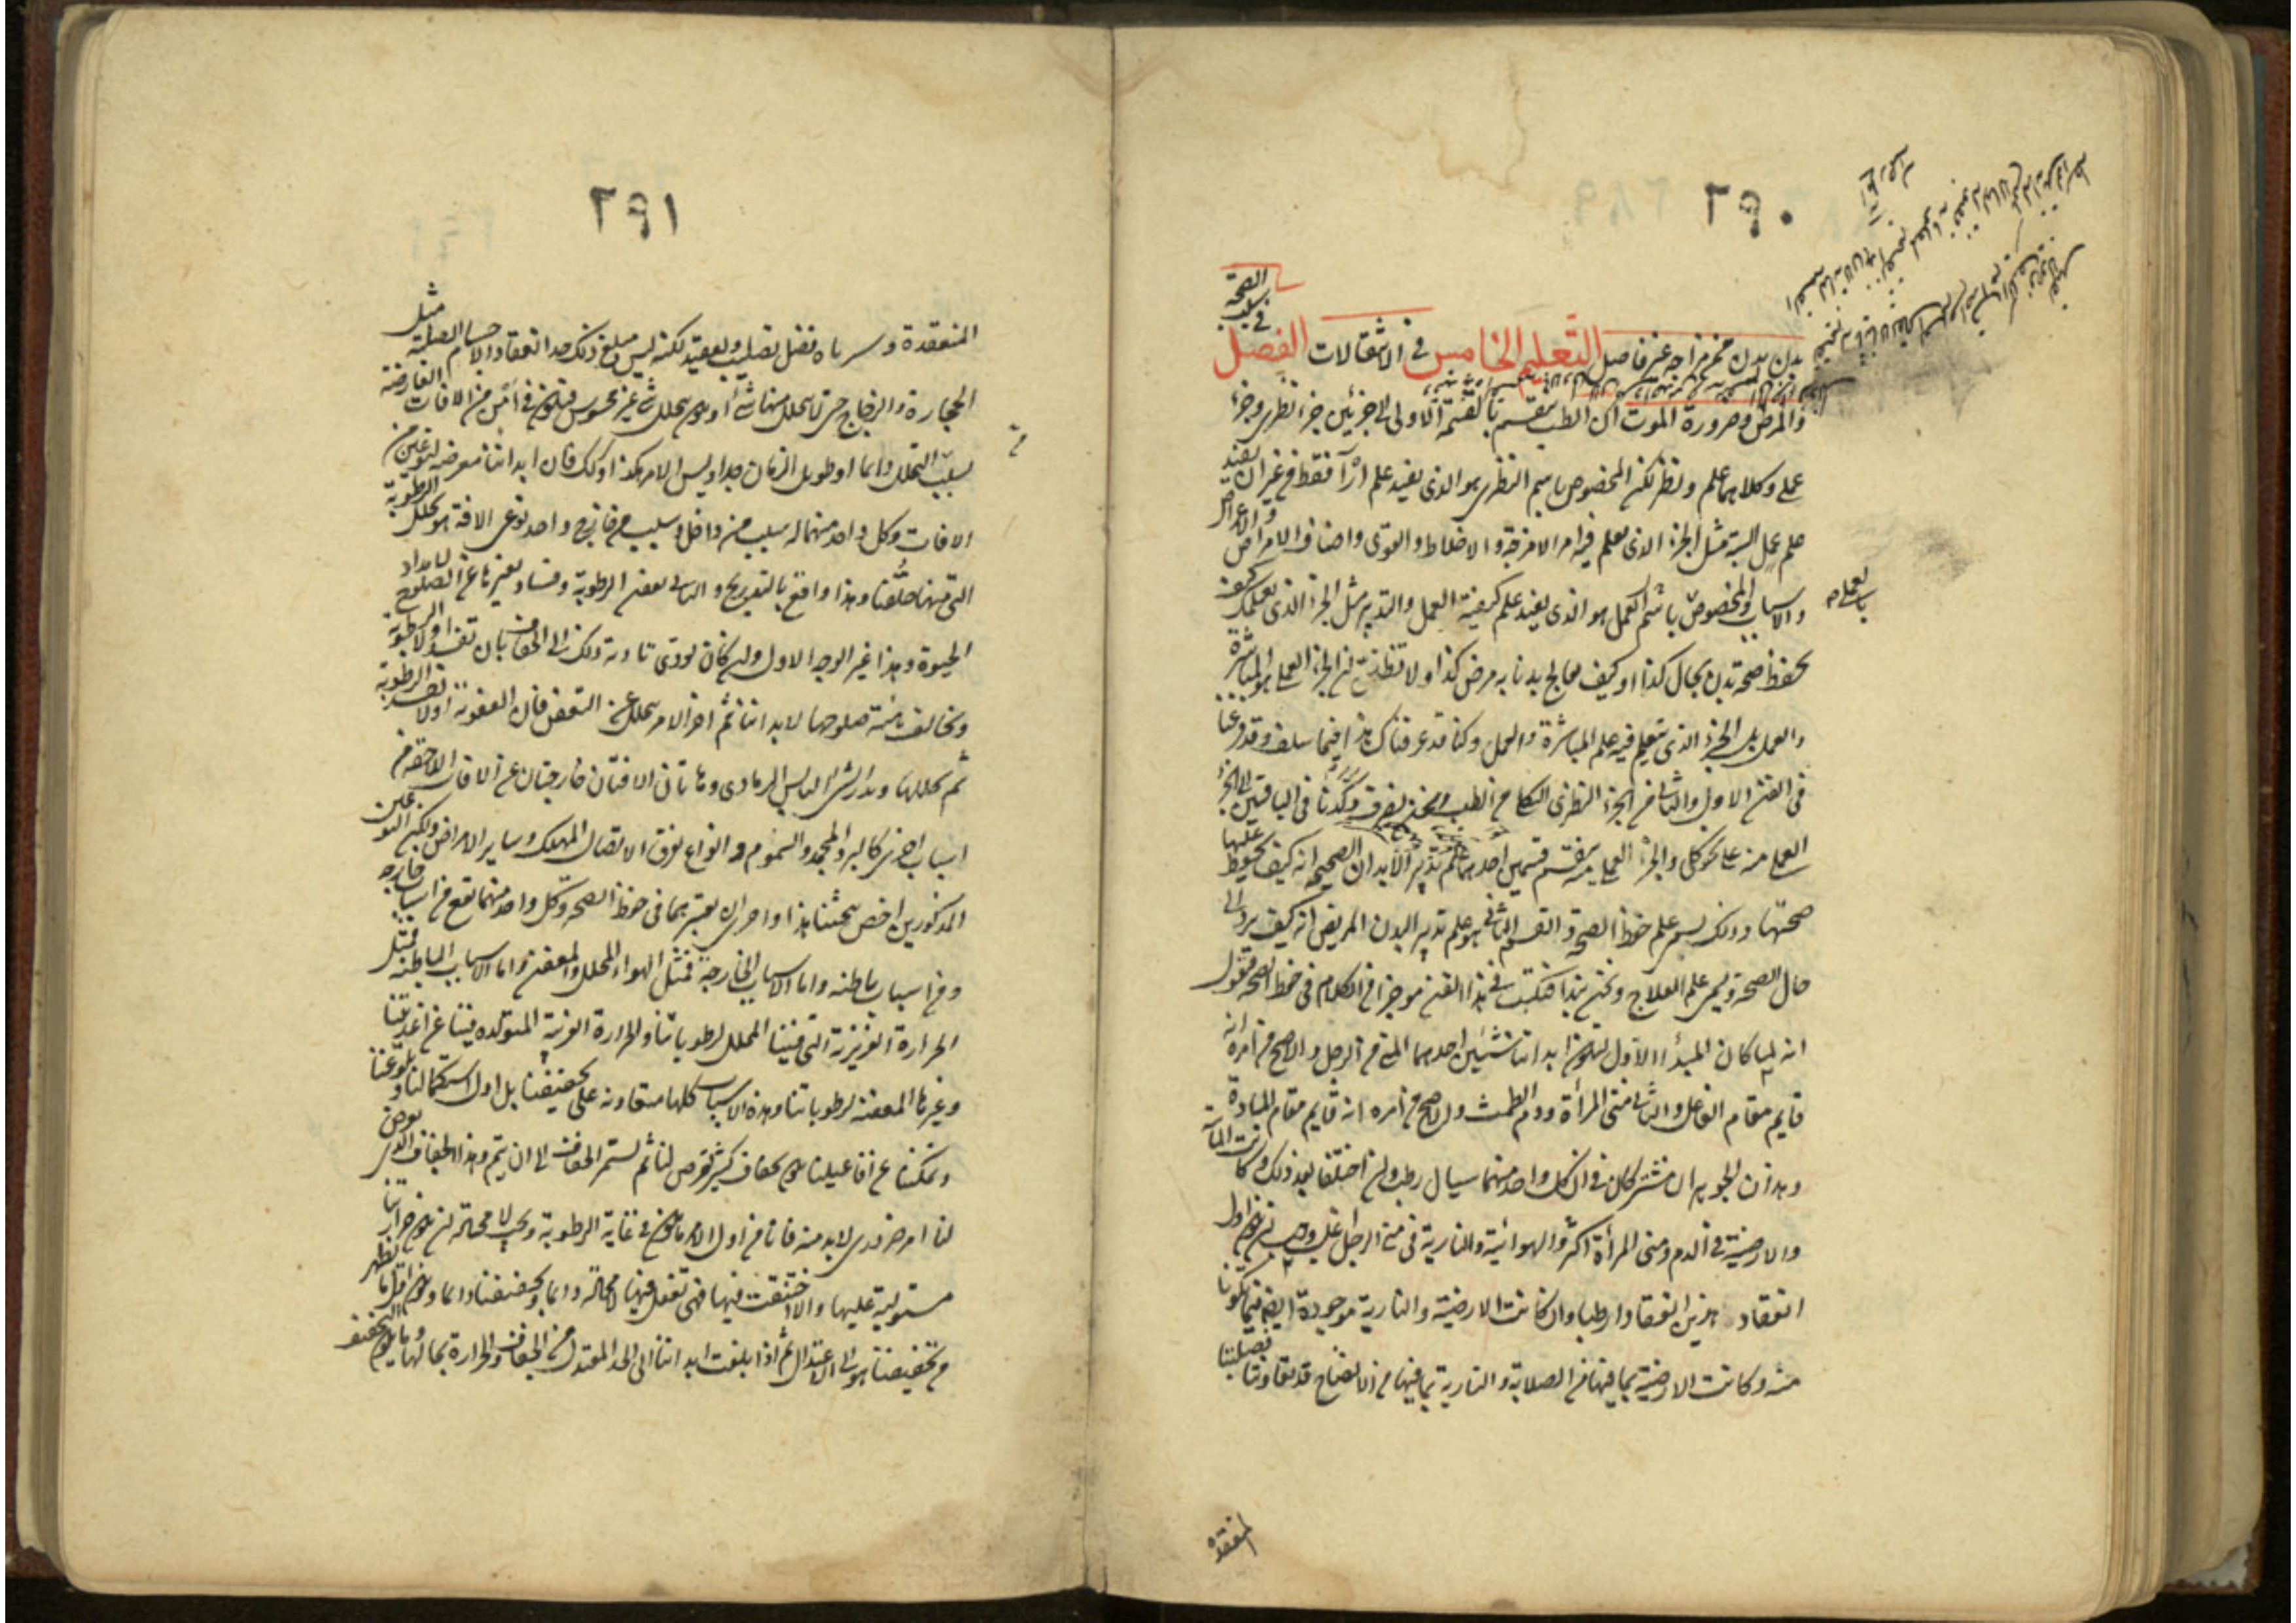 ٢٩٠
بدن بدن مخر مزاجه غير فاصل التعليم الخامس في الانتقالات الفصل
في سبب الصحة
والمرض وضرورة الموت ان الطب ينقسم بالقسمة الاولى الى جزئين جزء نظري وجزء
عملي وكلاهما علم ونظر لكن المخصوص باسم النظري هو الذي يفيد علم آراء فقط من غير ان يفيد
علم عمل البتة مثل الجزء الذي يعلم فيه امر الامزجة والاخلاط والقوى واصناف الامراض والاعراض
والاسباب والمخصوص باسم العمل هو الذي يفيد علم كيفية العمل والتدبير مثل الجزء الذي يعلمك كيف
تحفظ صحة بدن بحال كذا او كيف تعالج بدنا به مرض كذا ولا تظنن ان الجزء العملي هو المباشرة
والعمل بل الجزء الذي يتعلم فيه علم المباشرة والعمل وكنا قد عرفناك هذا فيما سلف وقد فرغنا
في الفن الاول والثاني من الجزء النظري الكلي من الطب ونحن نصرف وكدنا في الباقيين الى الجزء
العملي منه على نحو كلي والجزء العملي منه ينقسم قسمين احدهما علم تدبير الابدان الصحيحة انه كيف يحفظ عليها
صحتها وذلك يسمى علم حفظ الصحة والقسم الثاني هو علم تدبير البدن المريض انه كيف يرد الى
حال الصحة ويسمى علم العلاج ونحن نبدا فنكتب في هذا الفن موجزا من الكلام في حفظ الصحة فنقول
انه لما كان المبدأ الاول لتكون ابداننا شيئين احدهما المني من الرجل والاصح من امره انه
قايم مقام الفاعل والثاني مني المرأة ودم الطمث والاصح من امره انه قايم مقام المادة
وهذان الجوهران مشتركان في ان كل واحد منهما سيال رطب وان اختلفا بعد ذلك وكانت المائية
والارضية في الدم ومني المرأة اكثر والهوائية والنارية في مني الرجل اغلب وجب ان يكون اول
انعقاد هذين انعقادا رطبا وان كانت الارضية والنارية موجودة ايضا فيما تكونا
منه وكانت الارضية بما فيها من الصلابة والنارية بما فيها من الانضاج قد تعاونتا فصلبتا
المنعقدة
٢٩١
المنعقدة وسرباه فضل تصليب وتعقيد لكنه ليس يبلغ ذلك حد انعقاد الاجسام الصلبة مثل
الحجارة والزجاج حتى لا يتحلل منها شيء او يكون يتحلل شيء غير محسوس فيكون في امن من الافات العارضة
بسبب التحلل دايما او طويل الزمان جدا وليس الامر هكذا ولذلك فان ابداننا معرضة لنوعين من
الافات وكل واحد منهما له سبب من داخل وسبب من خارج واحد نوعي الافة هو تحلل الرطوبة
التي منها خلقنا وهذا واقع بالتدريج والثاني تعفن الرطوبة وفساد تغيرها عن الصلوح لامداد
الحيوة وهذا غير الوجه الاول وان كان يؤدي تاديته ذلك الى الجفاف بان تفسد اولا الرطوبة
وتخالف هيئة صلوحها لابداننا ثم اخر الامر يتحلل عن التعفن فان العفونة اولا تفسد الرطوبة
ثم تحللها وتذر الشئ اليابس الرمادي وهاتان الافتان خارجتان عن الافات اللاحقة من
اسباب اخرى كالبرد المجمد والسموم وانواع تفرق الاتصال المهلك وساير الامراض ولكن النوعين
المذكورين اخص بمبحثنا هذا واحرى ان نعتبرهما في حفظ الصحة وكل واحد منهما يقع من اسباب خارجة
ومن اسباب باطنة واما الاسباب الخارجة فمثل الهواء المحلل والمعفن واما الاسباب الباطنة فمثل
الحرارة الغريزية التي فينا المحلل لرطوباتنا والحرارة الغريبة المتولدة فينا عن اغذيتنا
وغيرها المعفنة لرطوباتنا وهذه الاسباب كلها متعاونة على تجفيفنا بل اول استكمالنا وبلوغنا
وتمكننا من افاعيلنا يكون بجفاف كثير يعرض لنا ثم يستمر الجفاف الى ان يتم وهذا الجفاف الذي يعرض
لنا امر ضروري لابد منه فانا من اول الامر ما نكون في غاية الرطوبة ويجب لا محالة ان يكون حرارتنا
مستولية عليها والا اختنقت فيها فهي تفعل فيها لا محالة دايما وتجففها دايما ويكون اول ما يظهر
من تجفيفنا هو الى الاعتدال ثم اذا بلغت ابداننا الى الحد المعتدل من الجفاف والحرارة بحالها لا يكون التجفيف